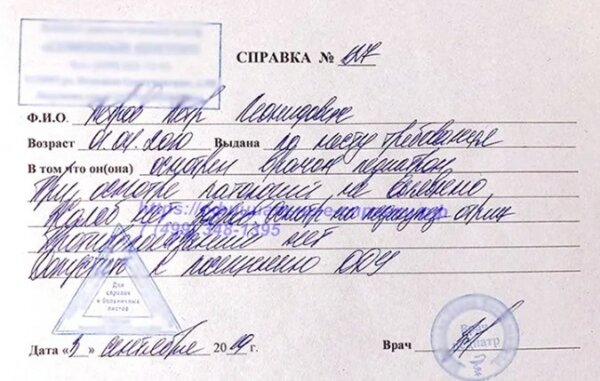 СПРАВКА № 127
Ф.И.О. Петров Петр Леонидович
Возраст 01.04.2010 Выдана по месту требования
В том что он(она) осмотрен врачом педиатром
При осмотре патологий не выявлено
Жалоб нет осмотр на педикулез отриц
Противопоказаний нет
Допущен к посещению ДДУ
Для
справок
и больничных
листов
(499) 348-1395
Дата «5» сентября 2019 г.
Врач
Врач
педиатр